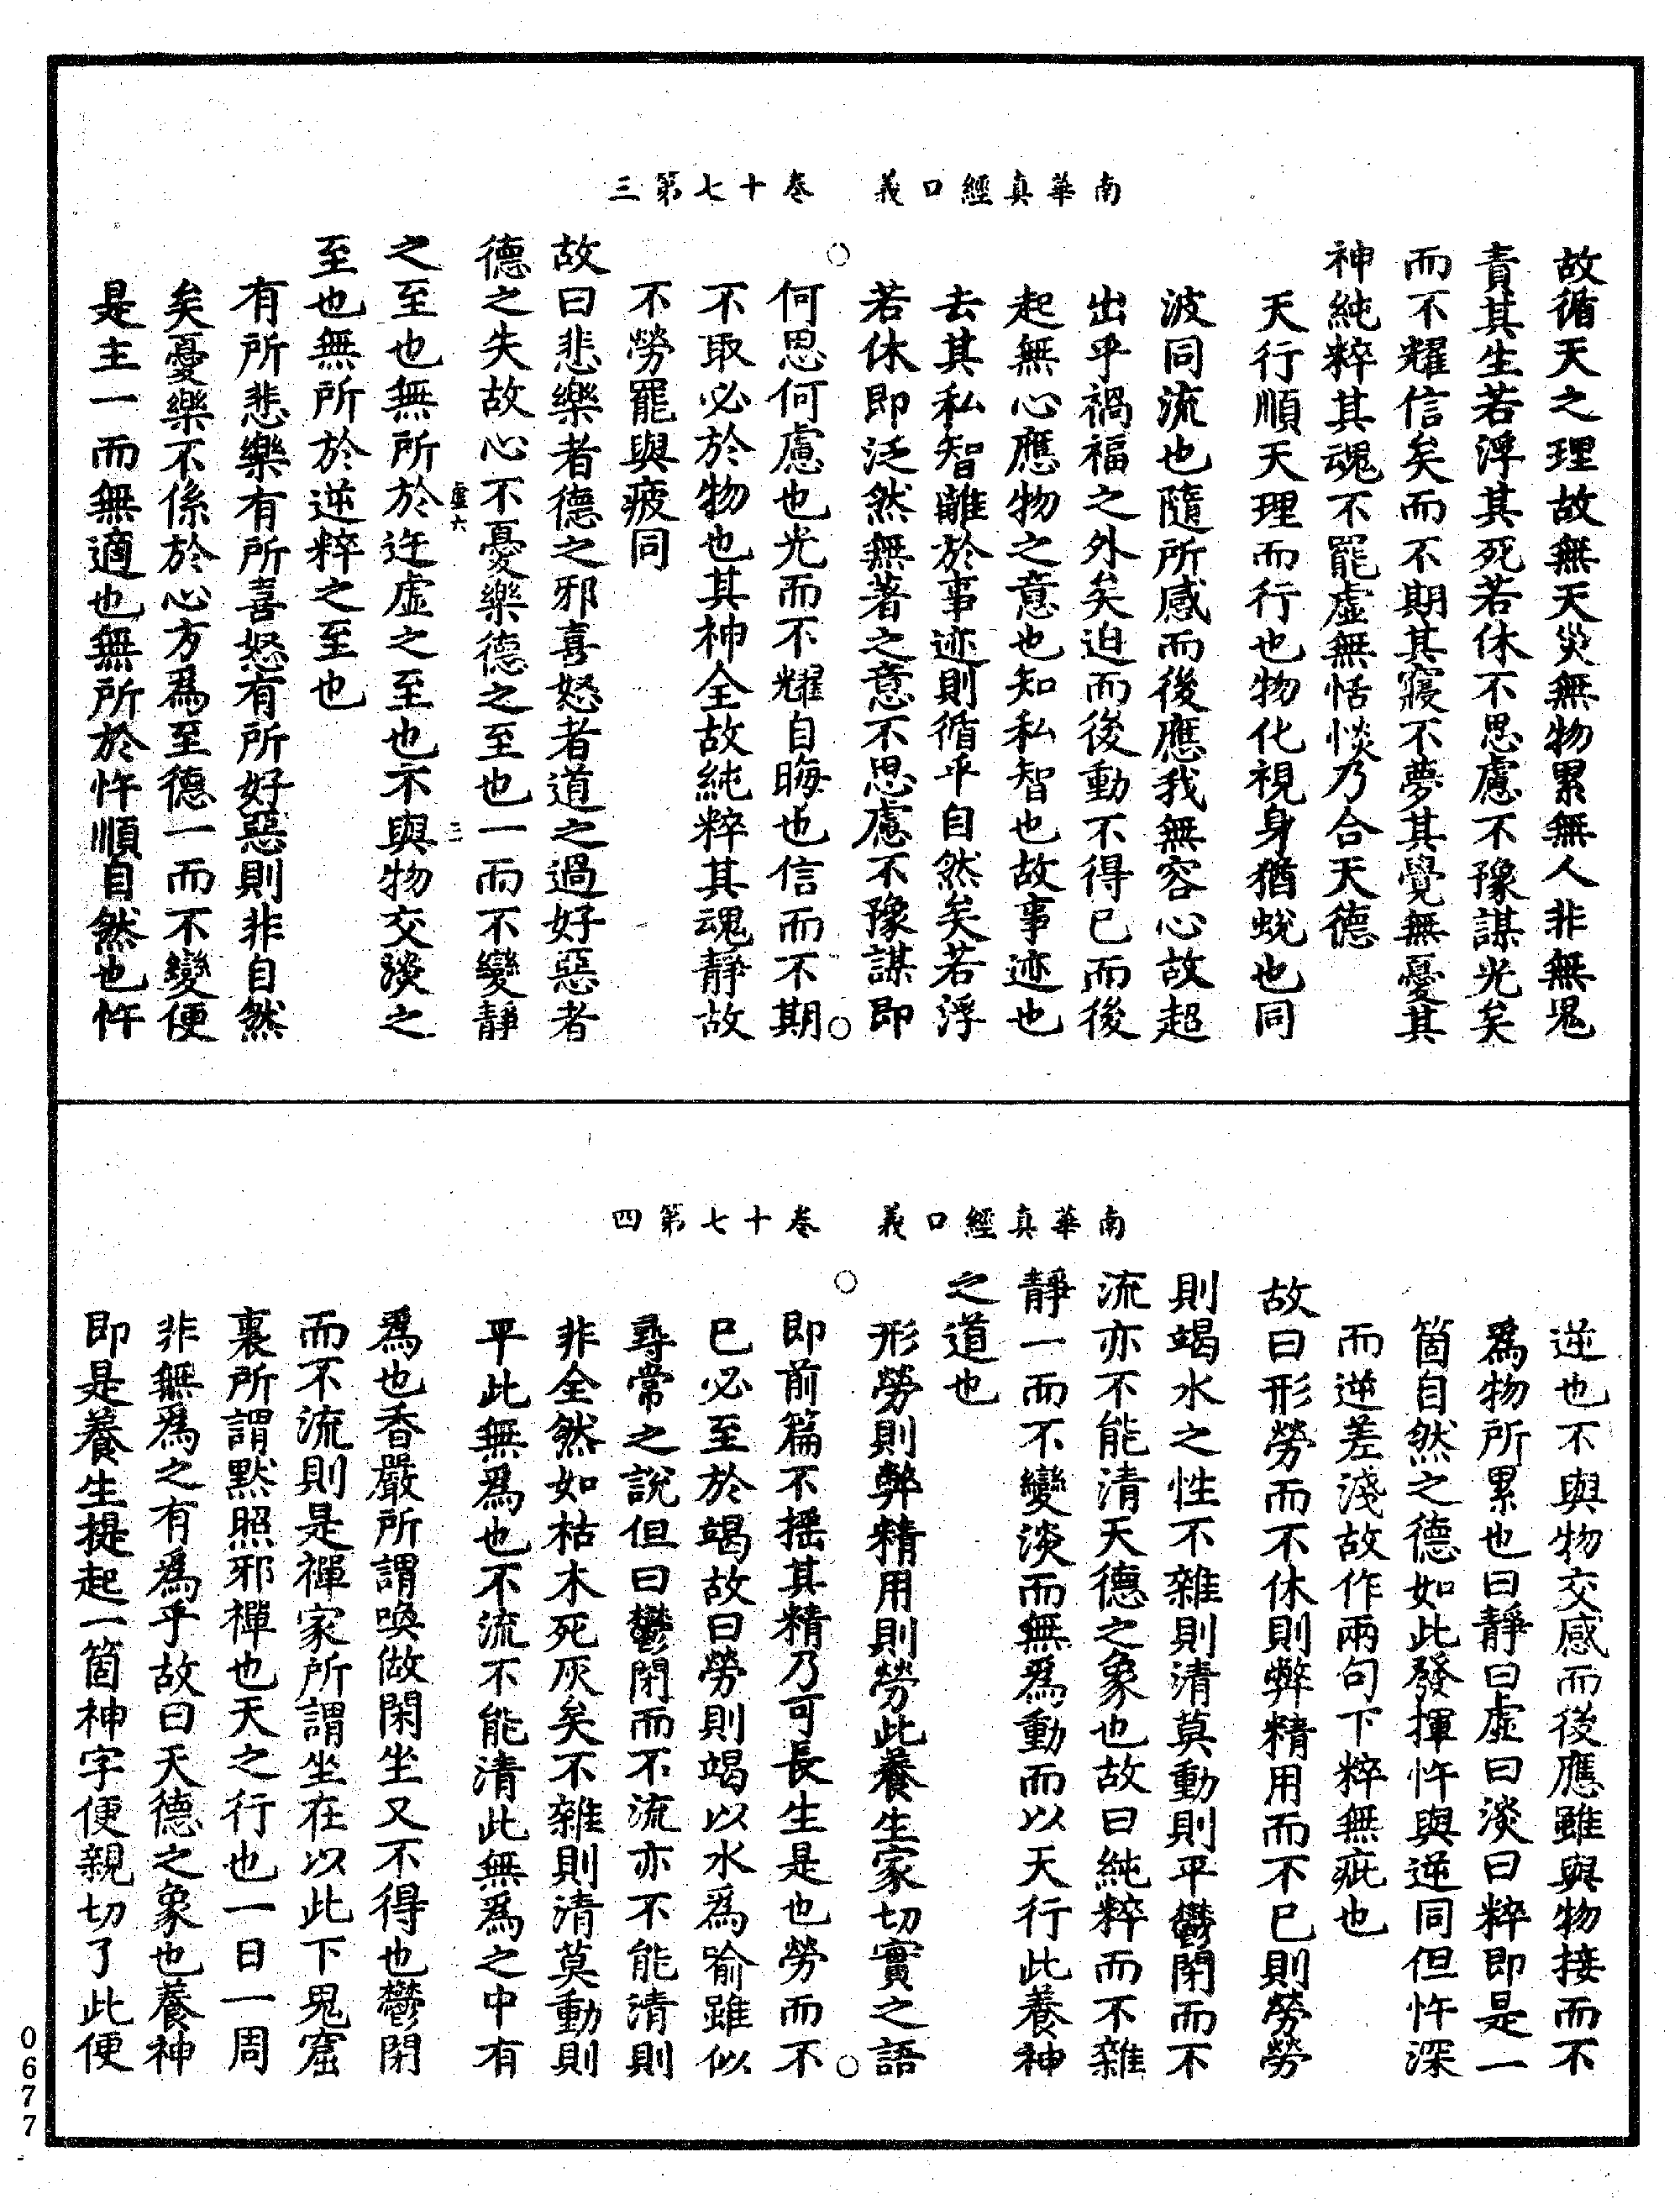 南華真經口義　卷十七第三
故循天之理故無天災無物累無人非無鬼
責其生若浮其死若休不思慮不豫謀光矣
而不耀信矣而不期其寢不夢其覺無憂其
神純粹其魂不罷虛無恬惔乃合天德
天行順天理而行也物化視身猶蛻也同
波同流也隨所感而後應我無容心故超
出乎禍福之外矣迫而後動不得已而後
起無心應物之意也知私智也故事迹也
去其私智離於事迹則循乎自然矣若浮
若休即泛然無著之意不思慮不豫謀即
何思何慮也光而不耀自晦也信而不期
不取必於物也其神全故純粹其魂靜故
不勞罷與疲同
故曰悲樂者德之邪喜怒者道之過好惡者
德之失故心不憂樂德之至也一而不變靜
虛六
三
之至也無所於迕虛之至也不與物交淡之
至也無所於逆粹之至也
有所悲樂有所喜怒有所好惡則非自然
矣憂樂不係於心方爲至德一而不變便
是主一而無適也無所於忤順自然也忤
南華真經口義　卷十七第四
逆也不與物交感而後應雖與物接而不
爲物所累也曰靜曰虛曰淡曰粹即是一
箇自然之德如此發揮忤與逆同但忤深
而逆差淺故作兩句下粹無疵也
故曰形勞而不休則弊精用而不已則勞勞
則竭水之性不雜則清莫動則平鬱閉而不
流亦不能清天德之象也故曰純粹而不雜
靜一而不變淡而無爲動而以天行此養神
之道也
形勞則弊精用則勞此養生家切實之語
即前篇不搖其精乃可長生是也勞而不
已必至於竭故曰勞則竭以水爲喻雖似
尋常之說但曰鬱閉而不流亦不能清則
非全然如枯木死灰矣不雜則清莫動則
平此無爲也不流不能清此無爲之中有
爲也香嚴所謂喚做閑坐又不得也鬱閉
而不流則是禪家所謂坐在以此下鬼窟
裏所謂默照邪禪也天之行也一日一周
非無爲之有爲乎故曰天德之象也養神
即是養生提起一箇神字便親切了此便
0677